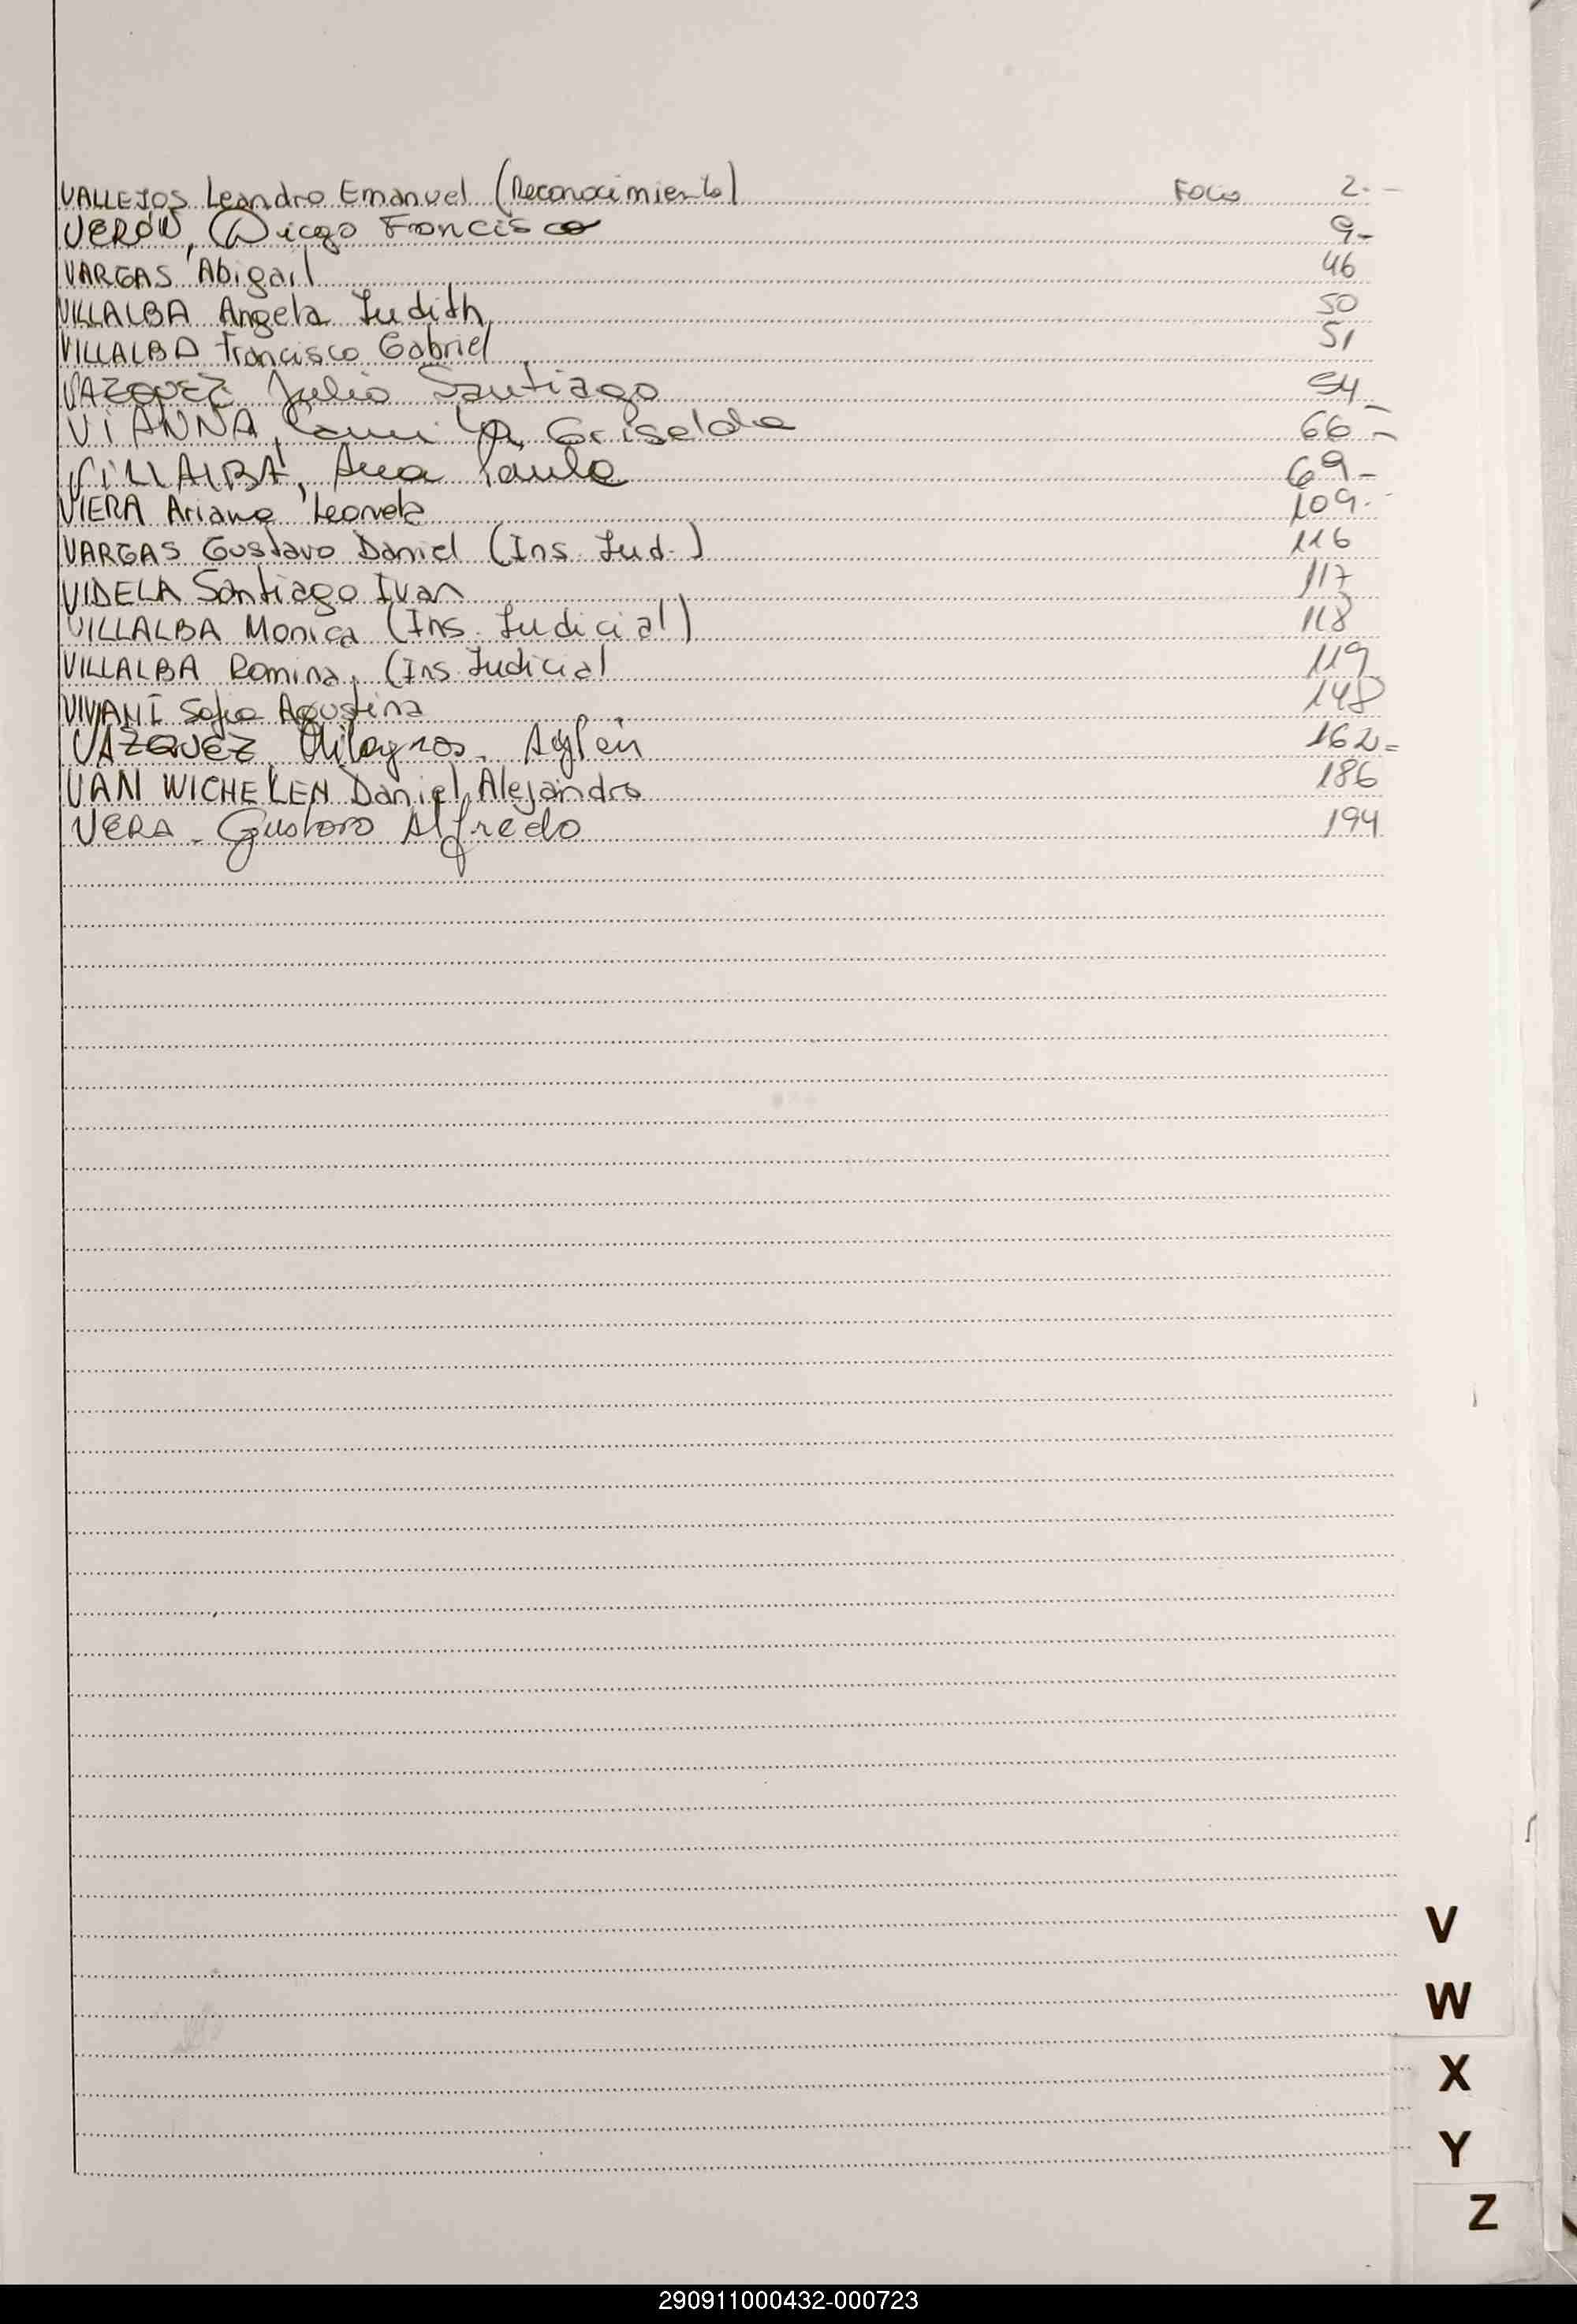 VALLEJOS Leandro Emanuel (Reconocimiento) FOLIO 2.-
VERÓN, Diego Francisco 9-
VARGAS, Abigail 46
VILLALBA Angela Judith 50
VILLALBA Francisco Gabriel 51
VAZQUEZ Julio Santiago 54
ViANNA, Camila Griselda 66-
ViLLALBA, Ana Paula 69-
VIERA Ariana Leonela 109.-
VARGAS Gustavo Daniel (Ins. Jud.) 116
VIDELA Santiago Ivan 117
VILLALBA Monica (Ins. Judicial) 118
VILLALBA Romina (Ins. Judicial 119
VIVIANI Sofia Agustina 148
VAZQUEZ Milagros Aylén 162=
VAN WICHELEN Daniel Alejandro 186
VERA - Gustavo Alfredo 194
V
W
X
Y
Z
290911000432-000723